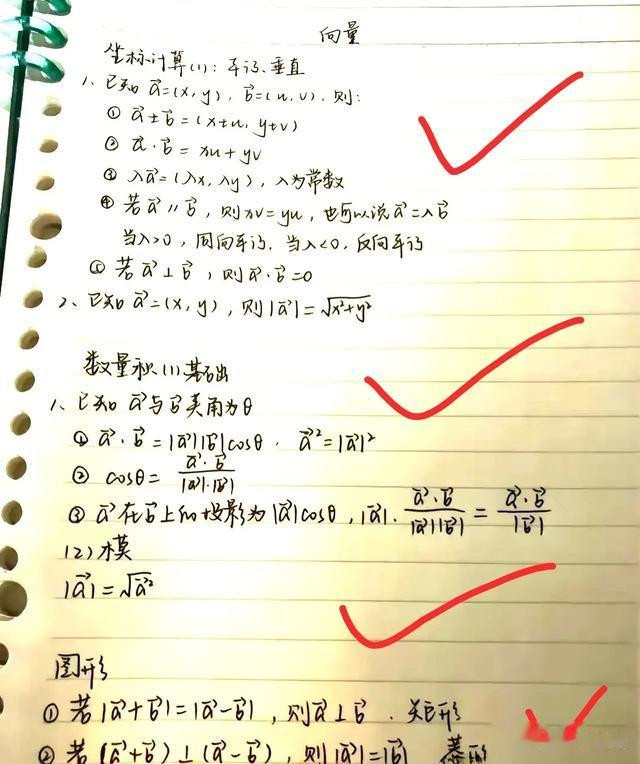 向量
坐标计算(1): 平行、垂直
1、已知 a⃗=(x, y), b⃗=(u, v), 则:
① a⃗±b⃗=(x±u, y±v)
② a⃗·b⃗=xu+yv
③ λa⃗=(λx, λy), λ为常数
④ 若a⃗∥b⃗, 则xv=yu, 也可以说a⃗=λb⃗
当λ>0, 同向平行, 当λ<0, 反向平行
⑤ 若a⃗⊥b⃗, 则a⃗·b⃗=0
2、已知 a⃗=(x, y), 则|a⃗|=√(x²+y²)
数量积(1)基础
1、已知 a⃗与b⃗夹角为θ
① a⃗·b⃗=|a⃗||b⃗|cosθ, a⃗²=|a⃗|²
② cosθ=a⃗·b⃗/|a⃗|·|b⃗|
③ a⃗在b⃗上的投影为|a⃗|cosθ, |a⃗|·a⃗·b⃗/|a⃗||b⃗|=a⃗·b⃗/|b⃗|
(2)模
|a⃗|=√a⃗²
图形
① 若|a⃗+b⃗|=|a⃗-b⃗|, 则a⃗⊥b⃗. 矩形
② 若(a⃗+b⃗)⊥(a⃗-b⃗), 则|a⃗|=|b⃗|